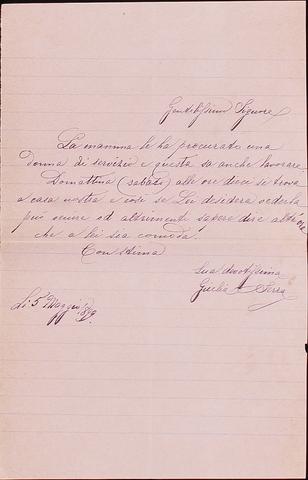 Gentilissima Signora,
La mamma le ha procurato una
donna di servizio e questa sa anche lavorare.
Domattina (sabato) alle ore dieci si trova
a casa nostra e così se Lei desidera vederla
può venire od altrimenti sapere dire altr'ora
che a lei sia comoda.
Con stima
Sua devotissima
Giulia Serra
Li 5 Maggio